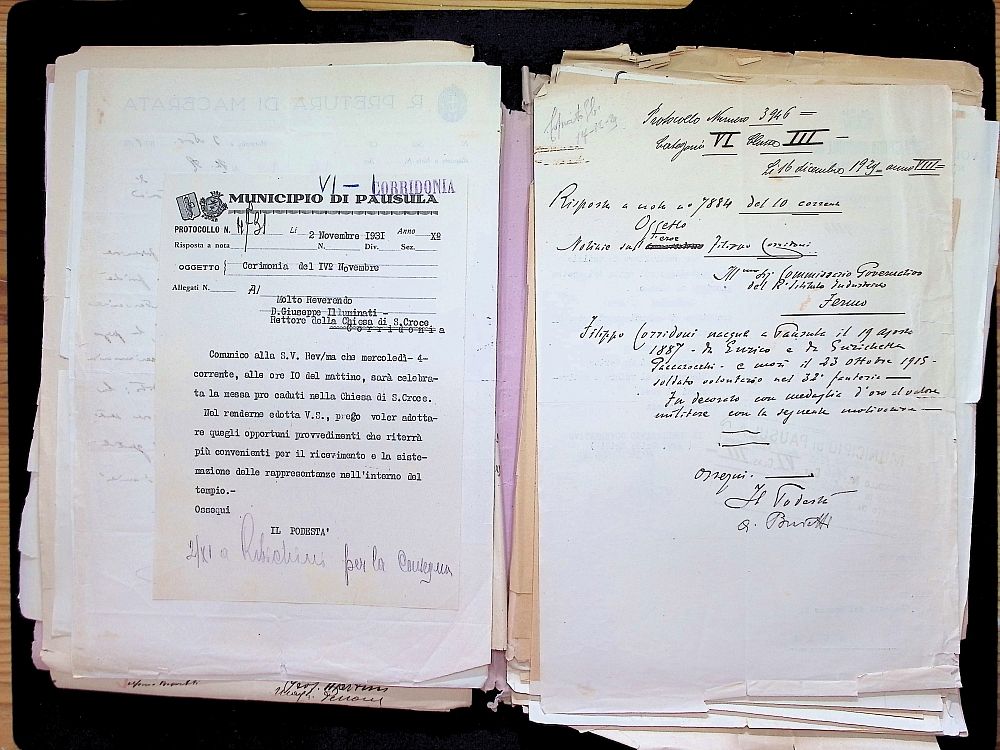 R. PRETURA DI MACERATA
VI - 1 CORRIDONIA
MUNICIPIO DI PAUSULA
PROTOCOLLO N. Li 2 Novembre 1931 Anno Xº
Risposta a nota N. Div. Sez.
OGGETTO Cerimonia del IVº Novembre
Allegati N. Al
Molto Reverendo
D.Giuseppe Illuminati -
Rettore della Chiesa di S.Croce
Corridonia
Comunico alla S.V. Rev/ma che mercoledì- 4-
corrente, alle ore IO del mattino, sarà celebra-
ta la messa pro caduti nella Chiesa di S.Croce.
Nel renderne edotta V.S., prego voler adotta-
re quegli opportuni provvedimenti che riterrà
più convenienti per il ricevimento e la siste-
mazione delle rappresentanze nell'interno del
tempio.-
Ossequi
IL PODESTA'
2/XI a Ribichini per la consegna
Protocollo Numero 3946 =
Categoria VI Classe III
Li 16 dicembre 1929 - anno VIII =
Risposta a nota nº 7884 del 10 corrente
Oggetto
Notizie sull' eroe Filippo Corridoni
Ill mo Sig. Commissario Governativo
del R. Istituto Industriale
Fermo
Filippo Corridoni nacque a Pausula il 19 agosto
1887 - da Enrico e da Enrichetta
Paccazocchi - e morì il 23 ottobre 1915 -
soldato volontario nel 32º fanteria
Fu decorato con medaglia d'oro al valore
militare con la seguente motivazione
Ossequi.
Il Podestà